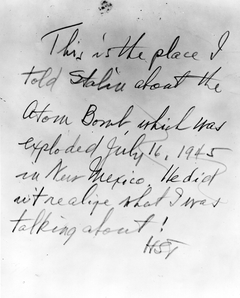 This is the place I
told Stalin about the
Atom Bomb, which was
exploded July 16, 1945
in New Mexico. He did
n't realize what I was
talking about!
HST